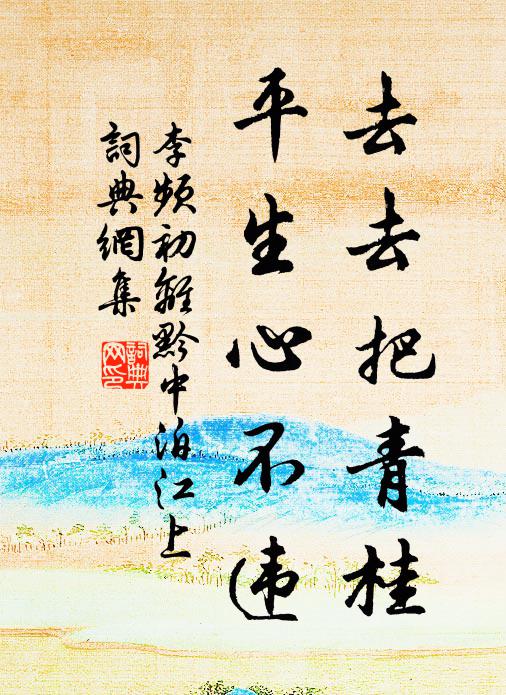 去去把青桂
平生心不违
李频初離黔中泊江上
詞典網集
詞典
网印